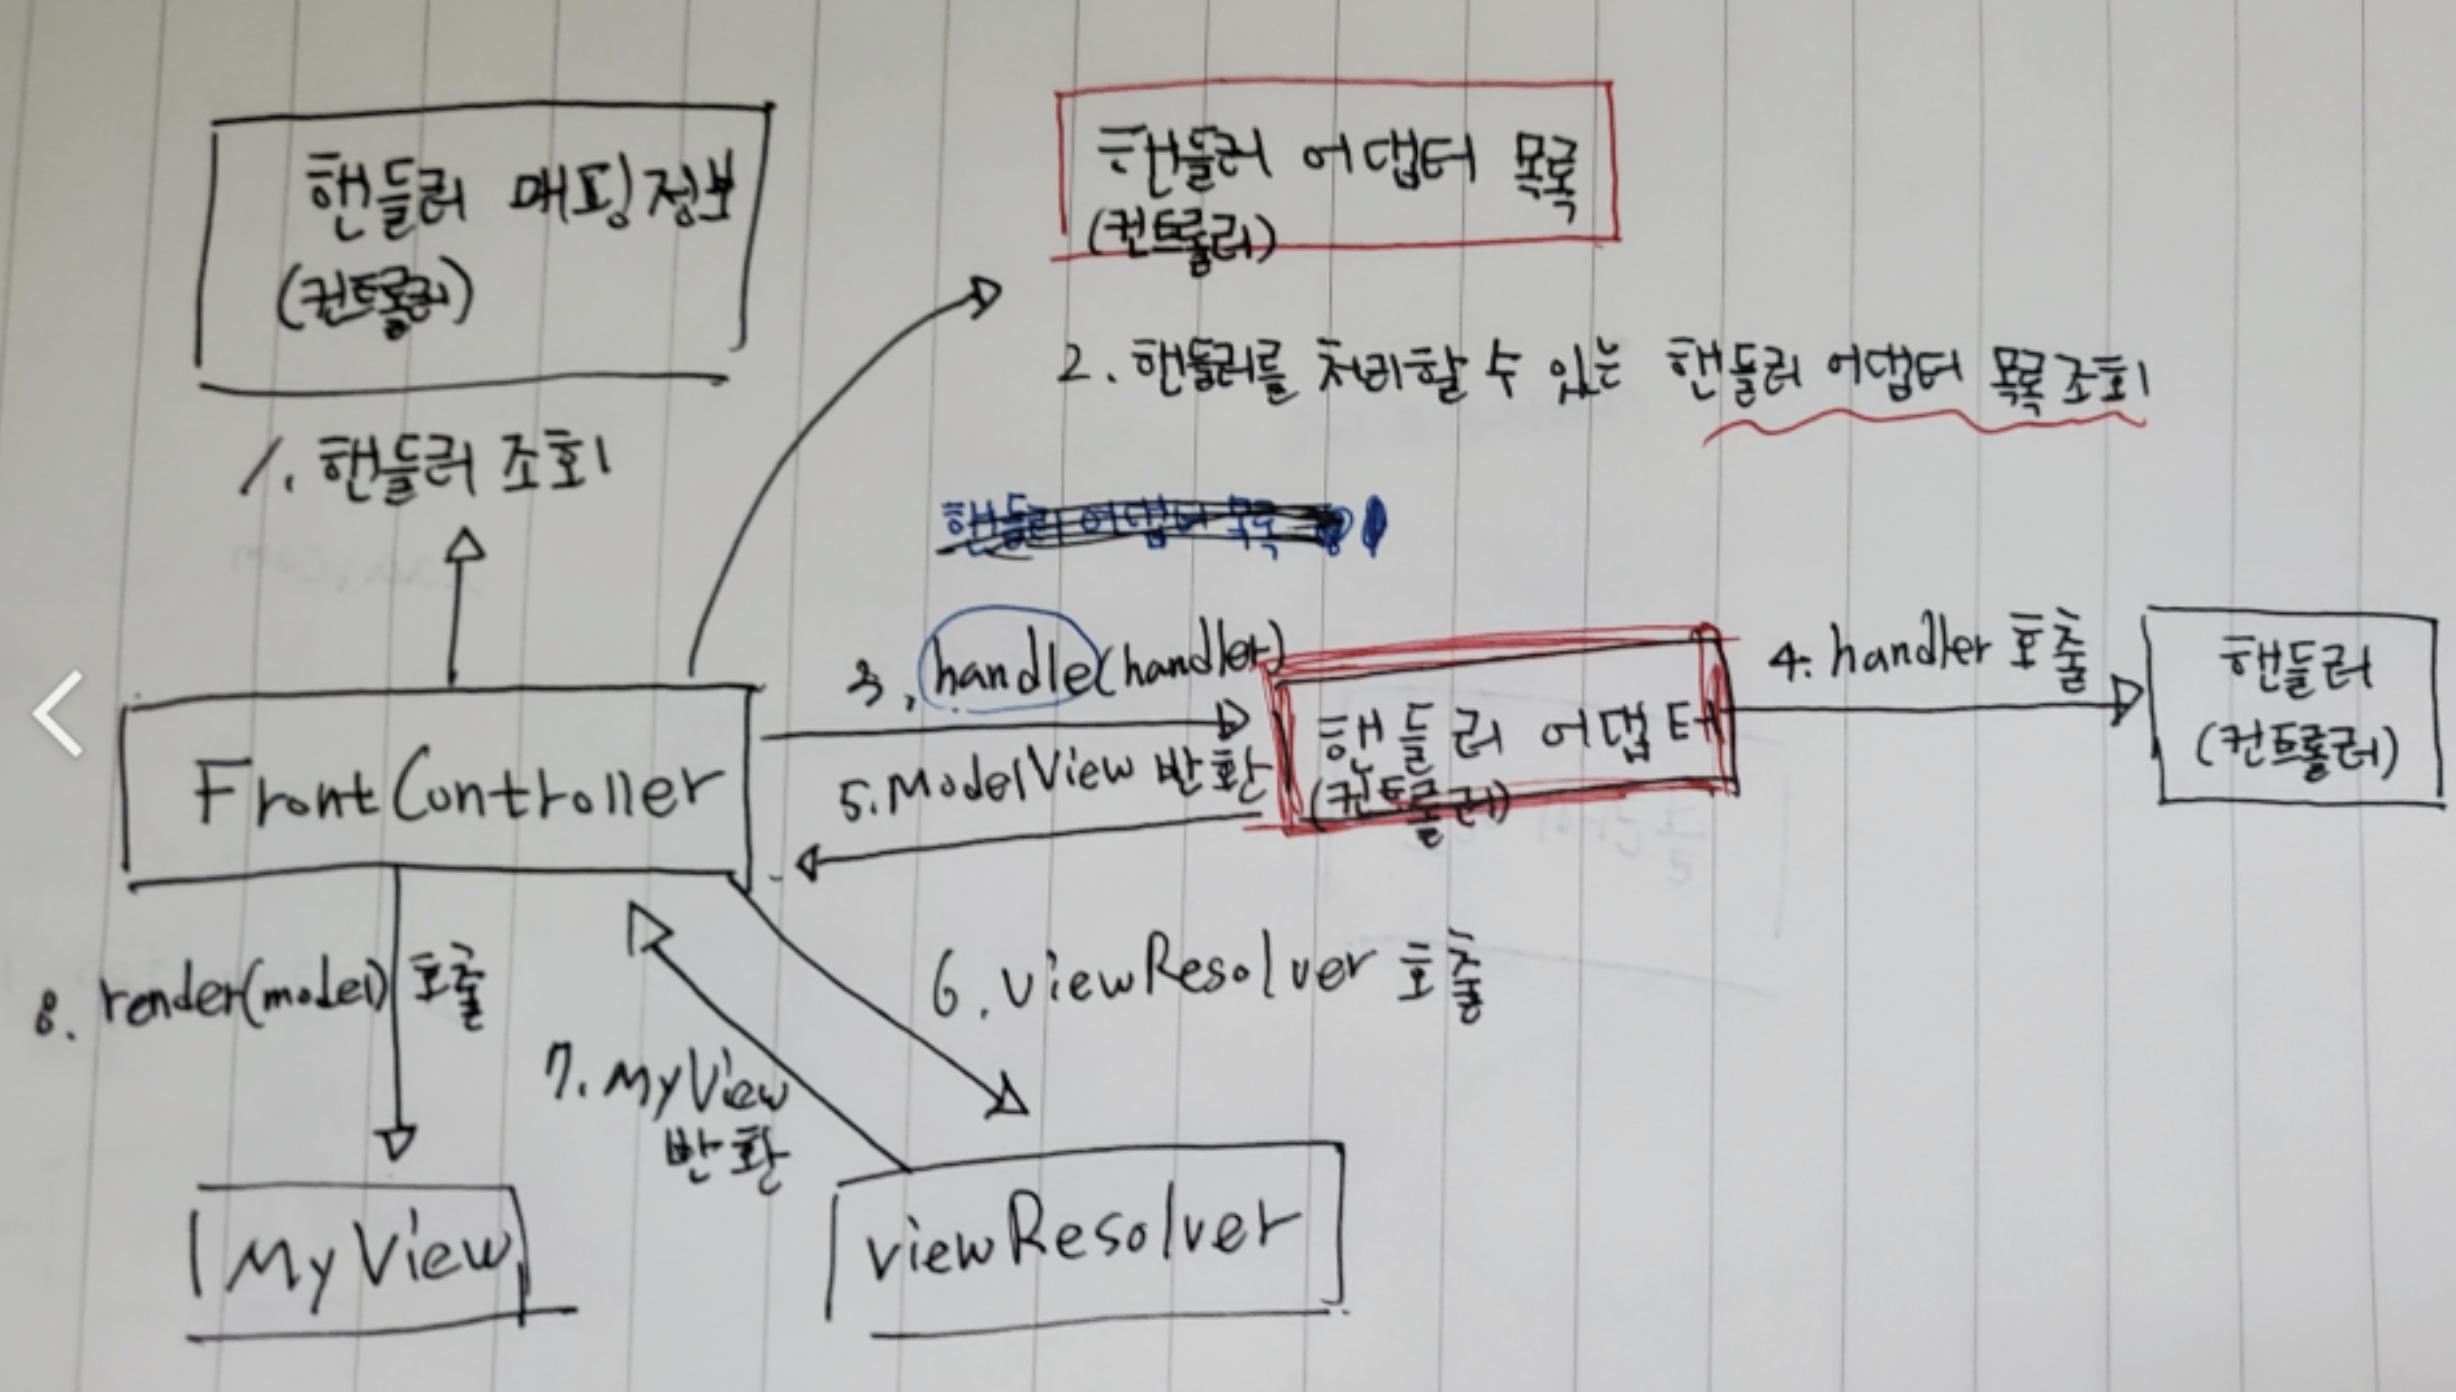 핸들러 매핑정보
(컨트롤러)
핸들러 어댑터 목록
(컨트롤러)
1. 핸들러 조회
2. 핸들러를 처리할 수 있는 핸들러 어댑터 목록조회
핸들러 어댑터 목록
3. handle(handler)
4. handler 호출
핸들러
(컨트롤러)
핸들러 어댑터
(컨트롤러)
FrontController
5. ModelView 반환
6. viewResolver 호출
7. MyView
반환
8. render(model) 호출
MyView
viewResolver